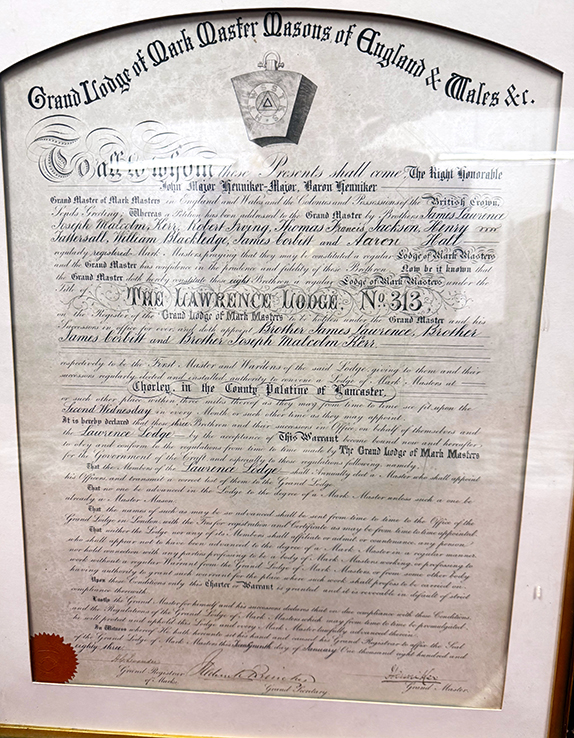 Grand Lodge of Mark Master Masons of England & Wales &c.
To all to whom these Presents shall come The Right Honorable
John Major Henniker-Major, Baron Henniker
Grand Master of Mark Masters in England and Wales and the Colonies and Possessions of the British Crown.
Sends Greeting. Whereas a Petition has been addressed to the Grand Master by Brothers James Lawrence
Joseph Malcolm Kerr, Robert Irving, Thomas Francis Jackson, Henry
Tattersall, William Blackledge, James Corbitt and Aaron Hall
regularly registered Mark Masters praying that they may be constituted a regular Lodge of Mark Masters
and the Grand Master has confidence in the prudence and fidelity of these Brethren. Now be it known that
the Grand Master doth hereby constitute these eight Brethren a regular Lodge of Mark Masters under the
Title of
THE LAWRENCE LODGE No. 313.
on the Register of the Grand Lodge of Mark Masters to be holden under the Grand Master and his
Successors in office for ever and doth appoint Brother James Lawrence, Brother
James Corbitt and Brother Joseph Malcolm Kerr
respectively to be the First Master and Wardens of the said Lodge giving to them and their
successors regularly elected and installed authority to convene a Lodge of Mark Masters at
Chorley, in the County Palatine of Lancaster,
or such other place within three miles thereof as they may from time to time see fit upon the
Second Wednesday in every Month or such other time as they may appoint.
It is hereby declared that these three Brethren and their successors in Office on behalf of themselves and
the Lawrence Lodge by the acceptance of This Warrant become bound now and hereafter
to act and conform to the regulations from time to time made by The Grand Lodge of Mark Masters
for the Government of the Craft and especially to these regulations following, namely.
That the Members of the Lawrence Lodge shall Annually elect a Master who shall appoint
his Officers and transmit a correct list of them to the Grand Lodge.
That no one be advanced in the Lodge to the degree of a Mark Master unless such a one be
already a Master Mason.
That the names of such as may be so advanced shall be sent from time to time to the Office of the
Grand Lodge in London with the Fees for registration and Certificate as may be from time to time appointed.
That neither the Lodge nor any of its Members shall affiliate or admit or countenance any person
who shall appear not to have been advanced to the degree of a Mark Master in a regular manner
nor hold connection with any parties professing to be a Lodge of Mark Masters working or professing to
work without a regular Warrant from the Grand Lodge of Mark Masters or from some other body
having authority to grant such warrant for the place where such work shall profess to be carried on.
Upon these Conditions only this Charter or Warrant is granted and it is revocable in default of strict
compliance therewith.
Lastly the Grand Master for himself and his successors declares that on due compliance with these Conditions
and the Regulations of the Grand Lodge of Mark Masters which may from time to time be promulgated
he will protect and uphold this Lodge and every Mark Master lawfully advanced therein.
In Witness whereof He hath hereunto set his hand and caused his Grand Registrar to affix the Seal
of the Grand Lodge of Mark Masters this day of January One thousand eight hundred and
eighty three
Grand Registrar
of Mark
Grand Secretary
Henniker
Grand Master